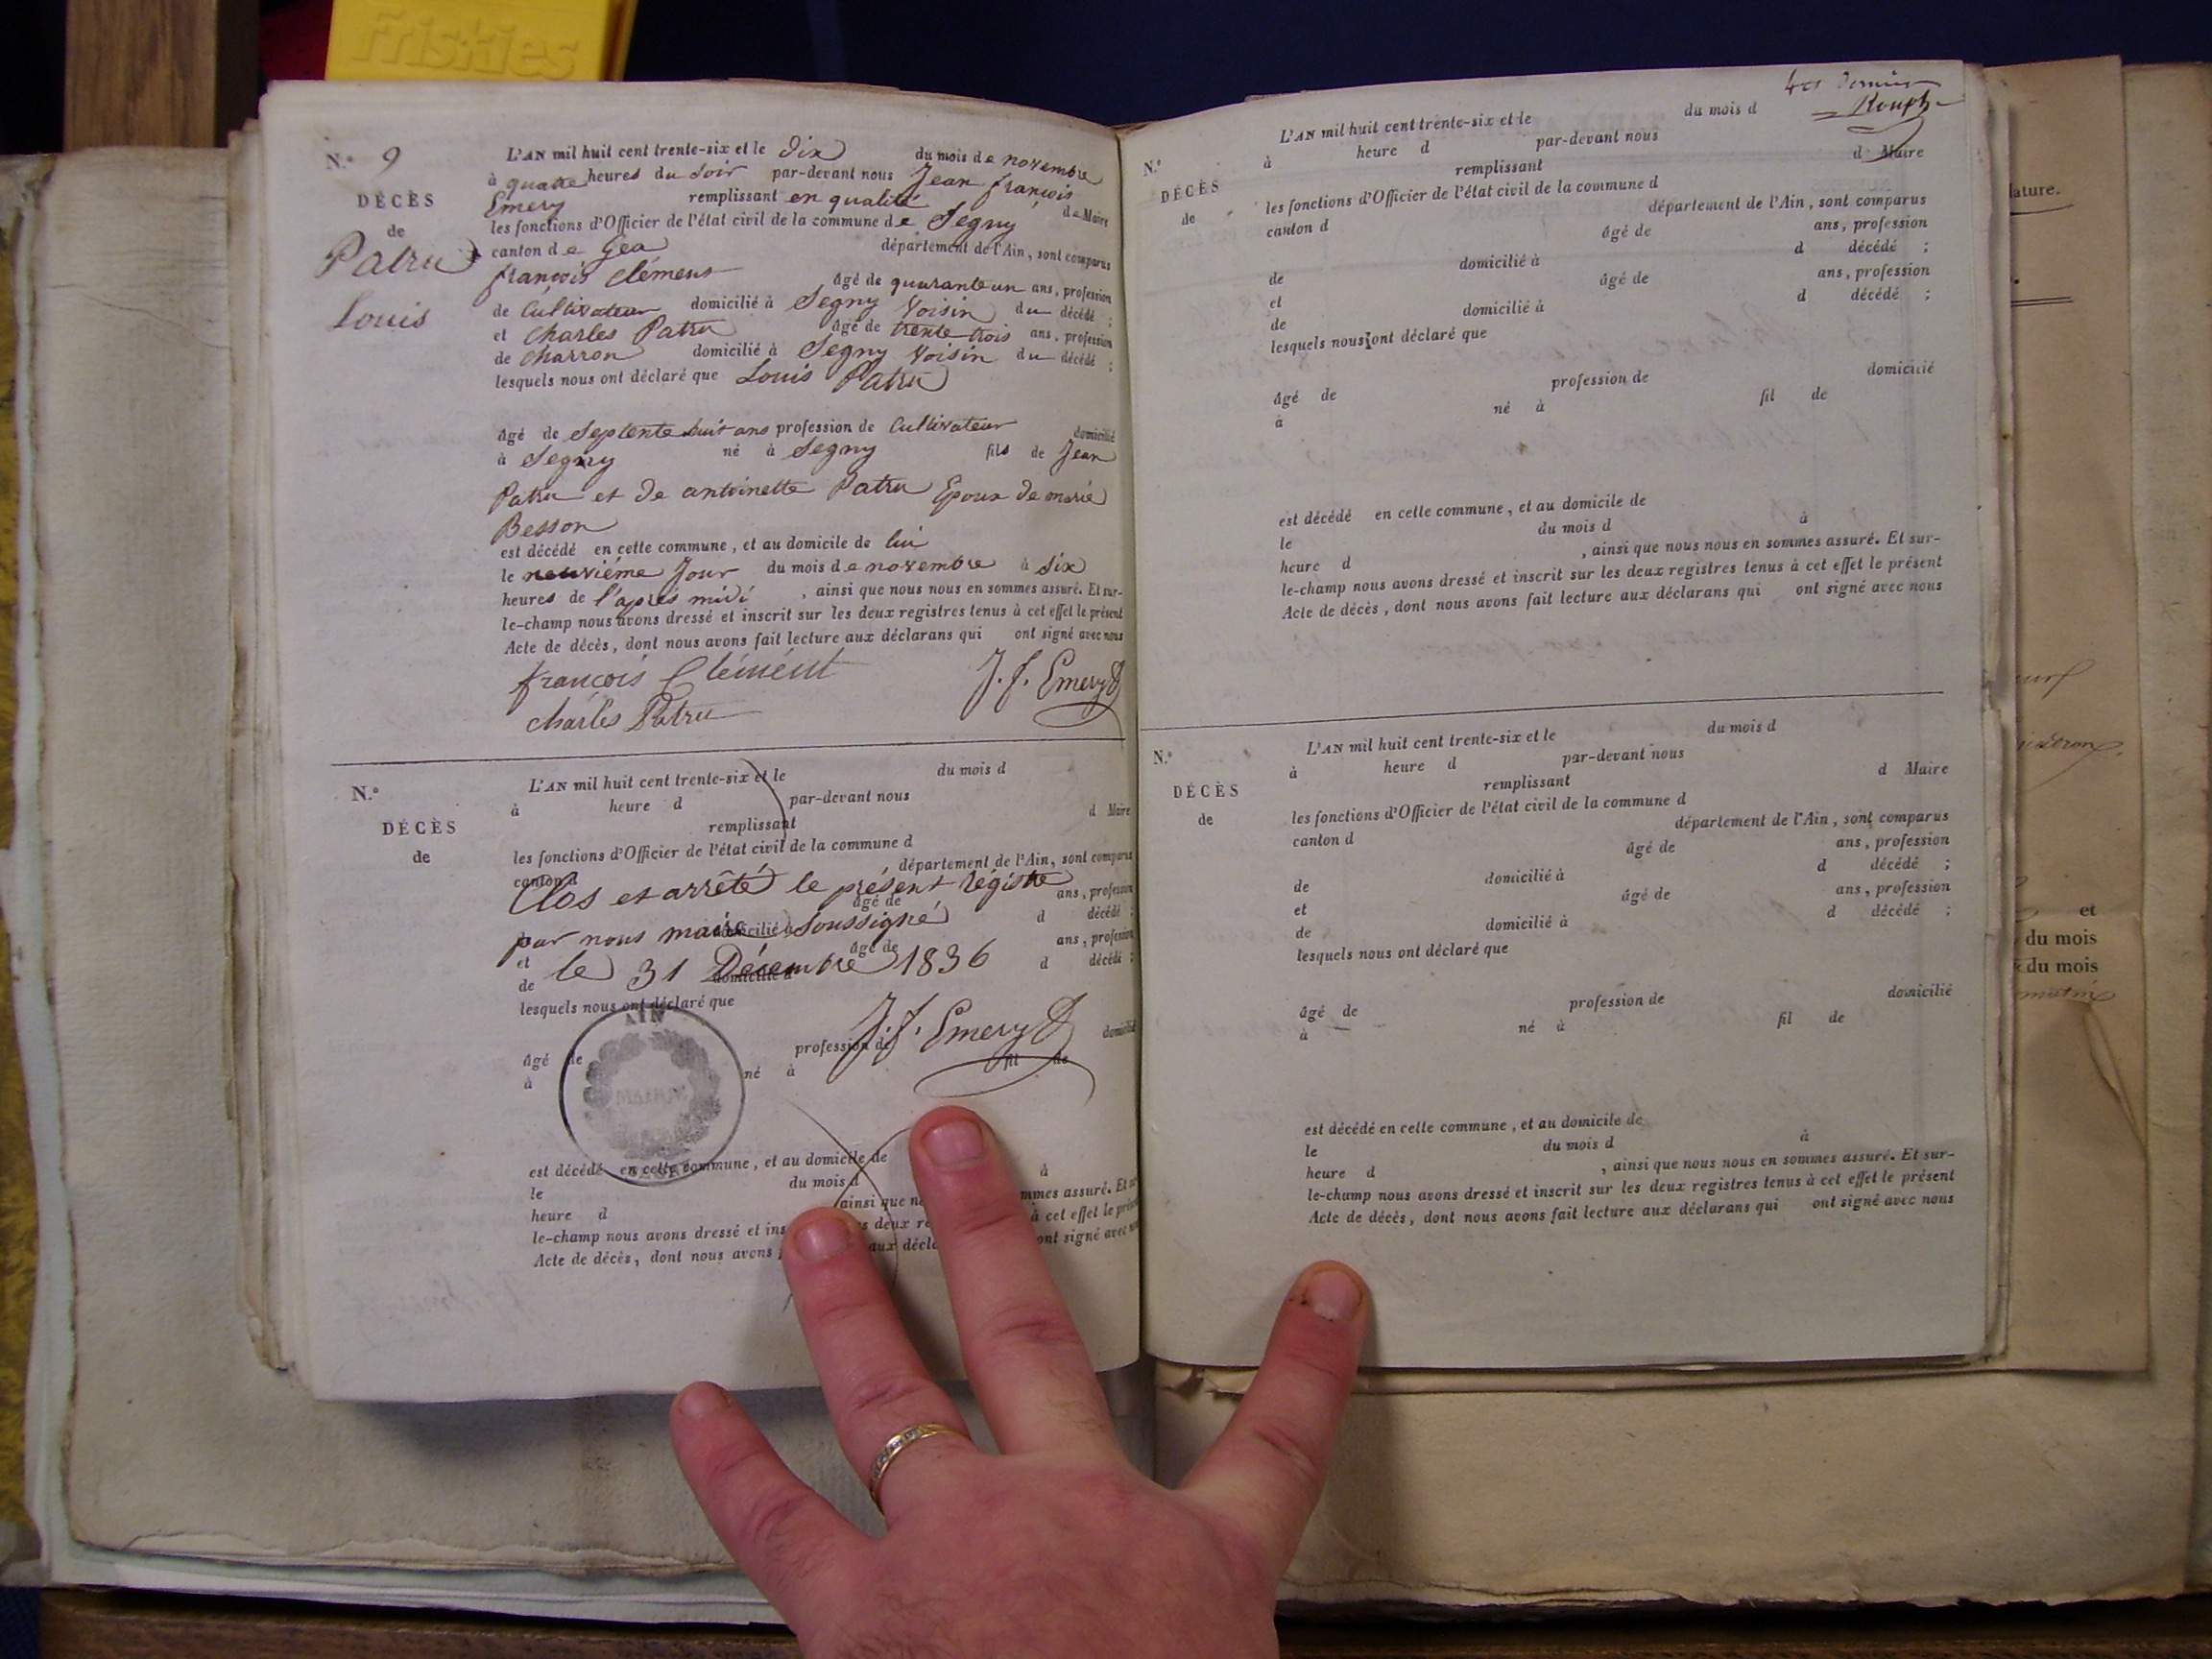 Friskies
N.° 9
DÉCÈS
de
Patru
Louis
L'AN mil huit cent trente-six et le dix du mois de novembre
à quatre heures du soir par-devant nous Jean françois
Emery remplissant en qualité de Maire
les fonctions d'Officier de l'état civil de la commune de Segny
canton de Gex département de l'Ain, sont comparus
françois Clément âgé de quarante un ans, profession
de Cultivateur domicilié à Segny Voisin du décédé ;
et Charles Patru âgé de trente trois ans, profession
de Charron domicilié à Segny Voisin du décédé ;
lesquels nous ont déclaré que Louis Patru
âgé de Septente huit ans profession de Cultivateur domicilié
à Segny né à Segny fils de Jean
Patru et de antoinette Patru Epoux de marie
Besson
est décédé en cette commune, et au domicile de lui
le neuvième Jour du mois de novembre à six
heures de l'après midi , ainsi que nous nous en sommes assuré. Et sur-
le-champ nous avons dressé et inscrit sur les deux registres tenus à cet effet le présent
Acte de décès, dont nous avons fait lecture aux déclarans qui ont signé avec nous
françois Clément J. f. Emery
charles Patru
N.°
DÉCÈS
de
L'AN mil huit cent trente-six et le du mois d
à heure d par-devant nous
remplissant d Maire
les fonctions d'Officier de l'état civil de la commune d
canton d département de l'Ain, sont comparus
Clos et arrêté le présent régistre
âgé de ans, profession
par nous maire soussigné
domicilié à d décédé ;
et âgé de ans, profession
le 31 Décembre 1836
de domicilié à d décédé ;
lesquels nous ont déclaré que
J. f. Emery
AIN
MAIRIE
âgé de profession de domicilié
à né à fil de
est décédé en cette commune, et au domicile de
le du mois d à
heure d ainsi que mmes assuré. Et
le-champ nous avons dressé et ins s deux re à cet effet le
Acte de décès, dont nous avons aux décla ont signé avec
N.°
DÉCÈS
de
L'AN mil huit cent trente-six et le du mois d
à heure d par-devant nous
remplissant d Maire
les fonctions d'Officier de l'état civil de la commune d
canton d département de l'Ain, sont comparus
âgé de ans, profession
de domicilié à d décédé ;
et âgé de ans, profession
de domicilié à d décédé ;
lesquels nous ont déclaré que
âgé de profession de domicilié
à né à fil de
est décédé en cette commune, et au domicile de
le du mois d à
heure d , ainsi que nous nous en sommes assuré. Et sur-
le-champ nous avons dressé et inscrit sur les deux registres tenus à cet effet le présent
Acte de décès, dont nous avons fait lecture aux déclarans qui ont signé avec nous
N.°
DÉCÈS
de
L'AN mil huit cent trente-six et le du mois d
à heure d par-devant nous
remplissant d Maire
les fonctions d'Officier de l'état civil de la commune d
canton d département de l'Ain, sont comparus
âgé de ans, profession
de domicilié à d décédé ;
et âgé de ans, profession
de domicilié à d décédé ;
lesquels nous ont déclaré que
âgé de profession de domicilié
à né à fil de
est décédé en cette commune, et au domicile de
le du mois d à
heure d , ainsi que nous nous en sommes assuré. Et sur-
le-champ nous avons dressé et inscrit sur les deux registres tenus à cet effet le présent
Acte de décès, dont nous avons fait lecture aux déclarans qui ont signé avec nous
ature.
et
du mois
du mois